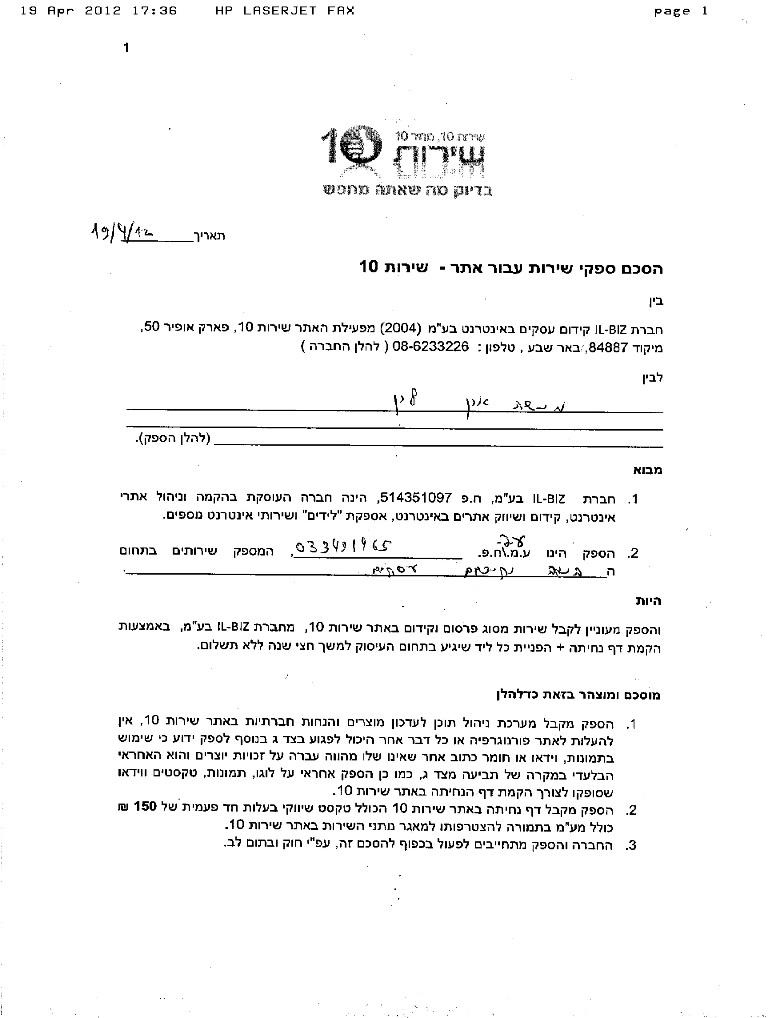 19 Apr 2012 17:36 HP LASERJET FAX page 1
1
שירות 10, מחיר 10
10 שירות
בדיוק מה שאתה מחפש
תאריך 19/4/12
הסכם ספקי שירות עבור אתר - שירות 10
בין
חברת IL-BIZ קידום עסקים באינטרנט בע"מ (2004) מפעילת האתר שירות 10, פארק אופיר 50,
מיקוד 84887, באר שבע, טלפון: 08-6233226 ( להלן החברה )
לבין
(להלן הספק).
מבוא
1. חברת IL-BIZ בע"מ, ח.פ 514351097, הינה חברה העוסקת בהקמה וניהול אתרי
אינטרנט, קידום ושיווק אתרים באינטרנט, אספקת "לידים" ושירותי אינטרנט נוספים.
2. הספק הינו ע.מ\ח.פ. 033491965, המספק שירותים בתחום
ה
היות
והספק מעוניין לקבל שירות מסוג פרסום וקידום באתר שירות 10, מחברת IL-BIZ בע"מ, באמצעות
הקמת דף נחיתה + הפניית כל ליד שיגיע בתחום העיסוק למשך חצי שנה ללא תשלום.
מוסכם ומוצהר בזאת כדלהלן
1. הספק מקבל מערכת ניהול תוכן לעדכון מוצרים והנחות חברתיות באתר שירות 10, אין
להעלות לאתר פורנוגרפיה או כל דבר אחר היכול לפגוע בצד ג בנוסף לספק ידוע כי שימוש
בתמונות, וידאו או חומר כתוב אחר שאינו שלו מהווה עברה על זכויות יוצרים והוא האחראי
הבלעדי במקרה של תביעה מצד ג, כמו כן הספק אחראי על לוגו, תמונות, טקסטים ווידאו
שסופקו לצורך הקמת דף הנחיתה באתר שירות 10.
2. הספק מקבל דף נחיתה באתר שירות 10 הכולל טקסט שיווקי בעלות חד פעמית של 150 ₪
כולל מע"מ בתמורה להצטרפותו למאגר נותני השירות באתר שירות 10.
3. החברה והספק מתחייבים לפעול בכפוף להסכם זה, עפ"י חוק ובתום לב.